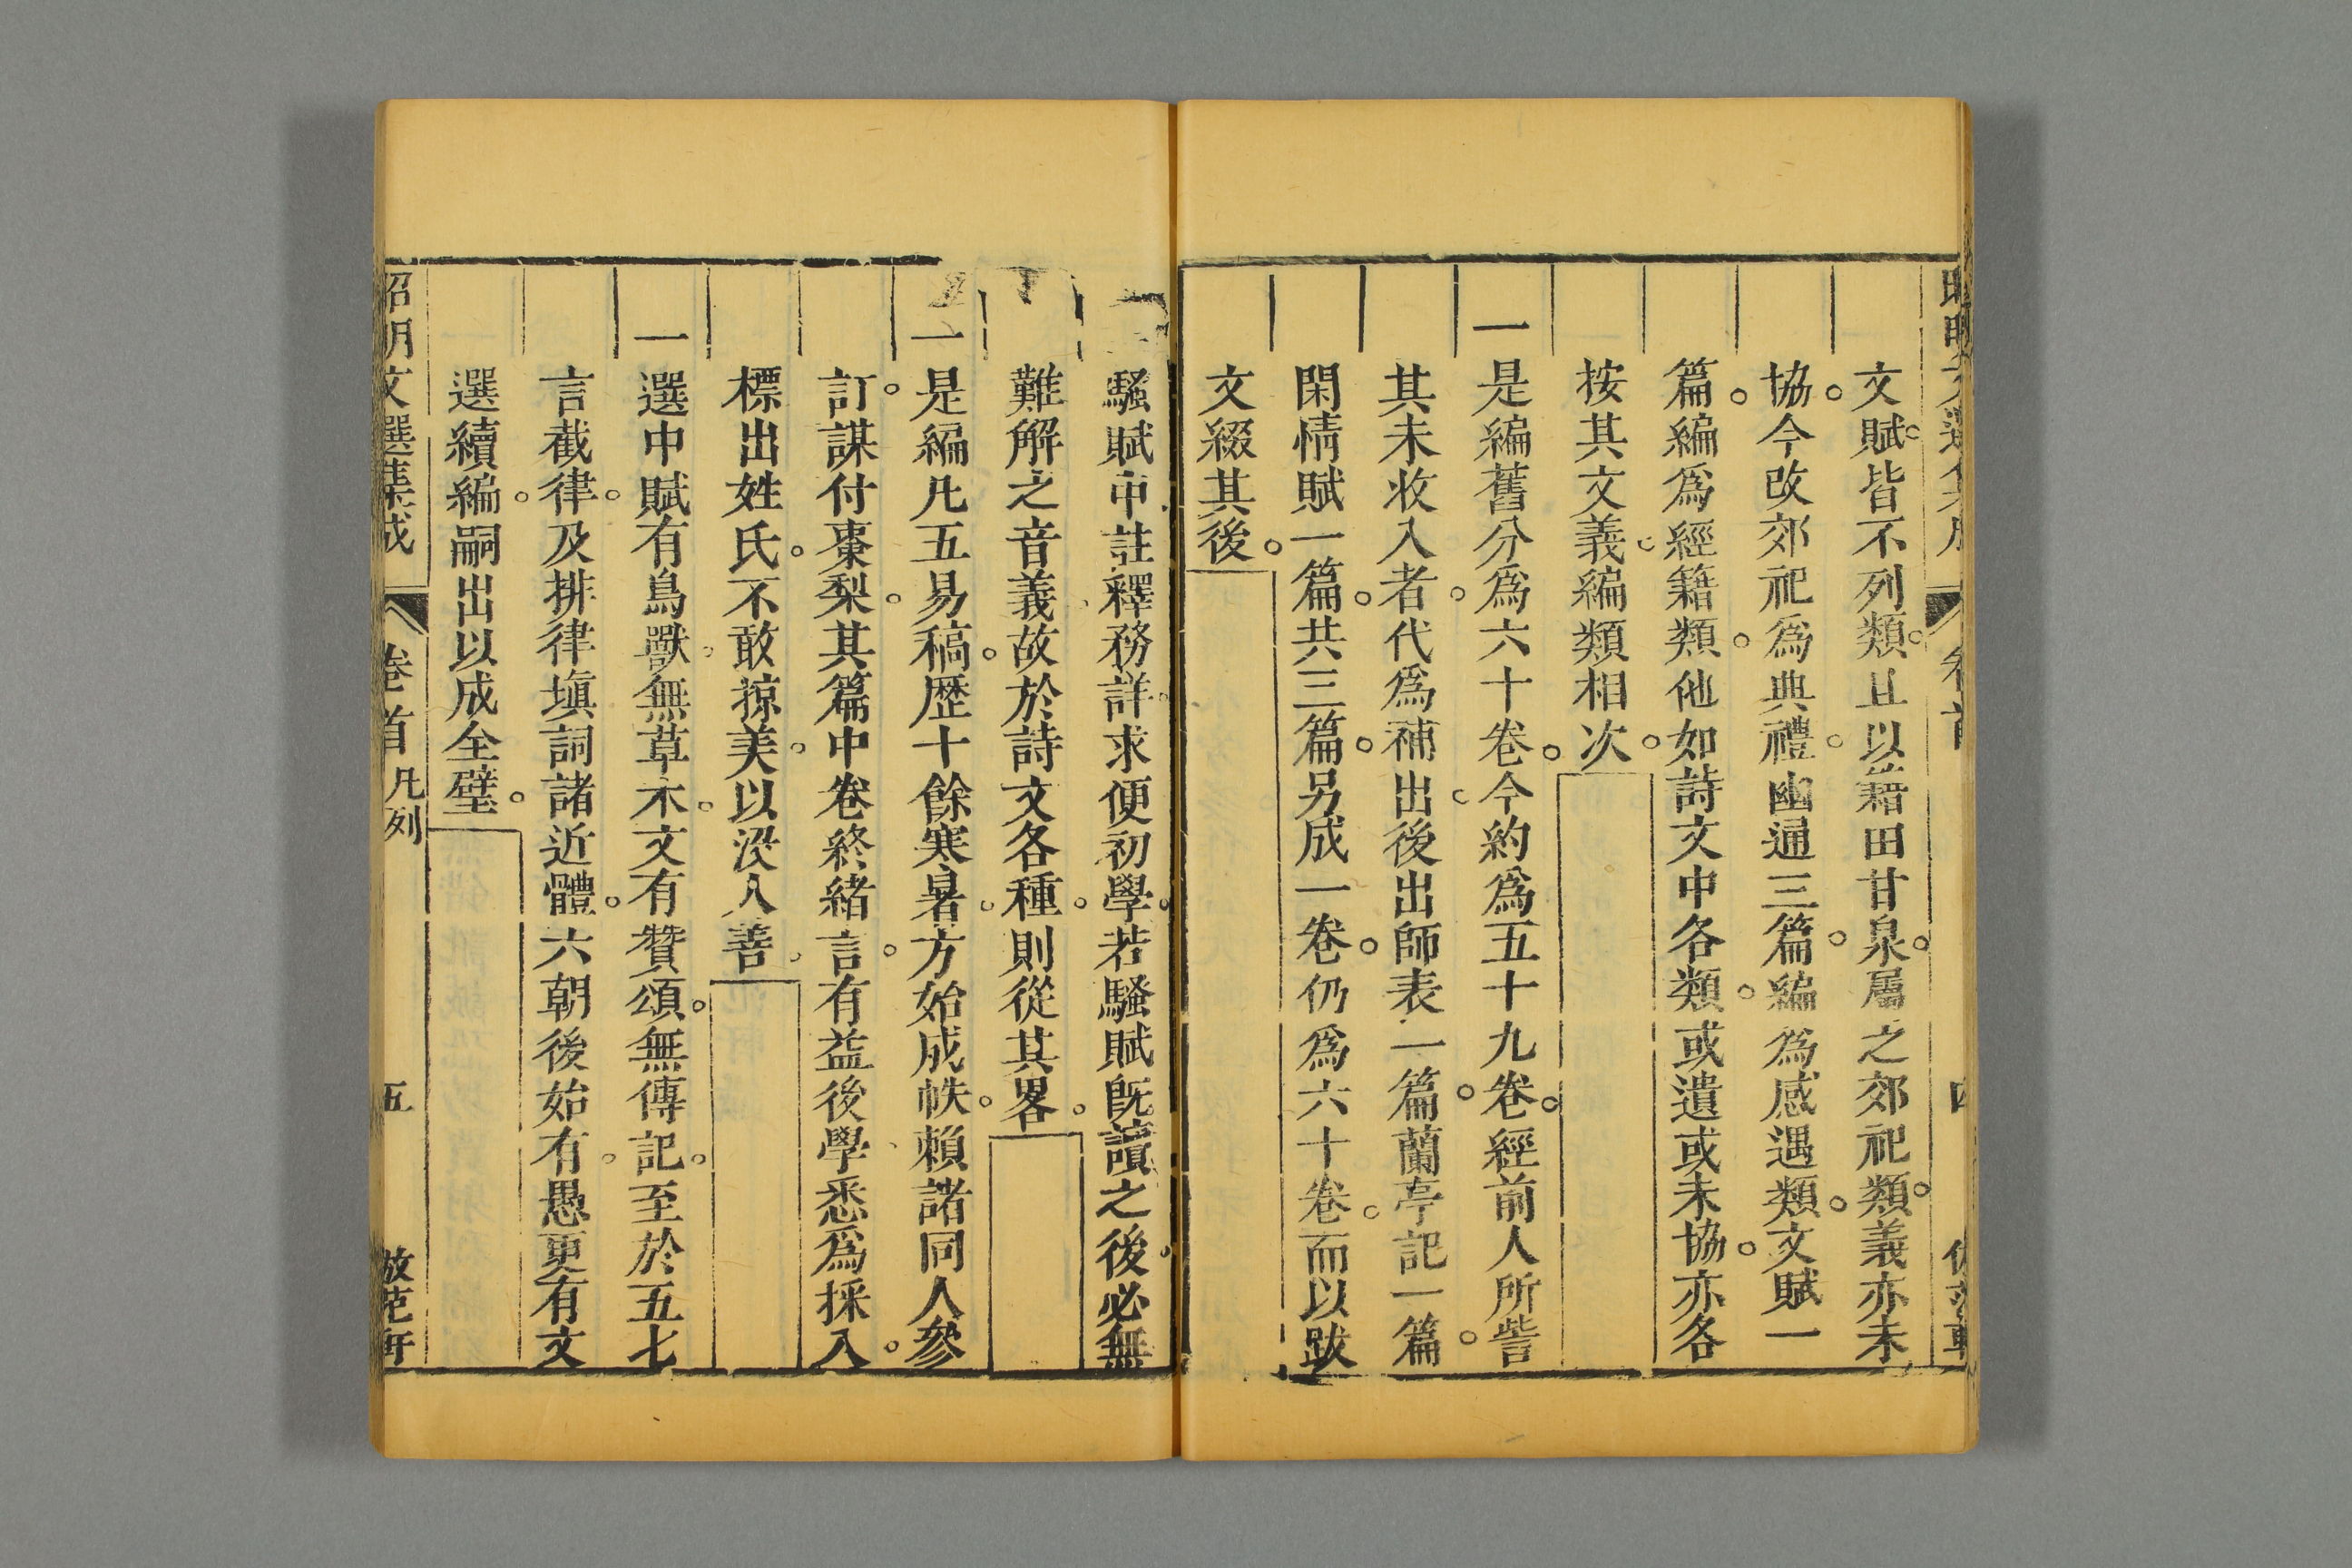 文賦。皆不列類。且以籍田甘泉。屬之郊祀類。義亦未
協。今改郊祀爲典禮。幽通三篇。編爲感遇類。文賦一
篇。編爲經籍類。他如詩文中各類。或遺或未協。亦各
按其文義。編類相次。
一是編舊分爲六十卷。今約爲五十九卷。經前人所訾
其未收入者。代爲補出。後出師表一篇。蘭亭記一篇。
閑情賦一篇。共三篇。另成一卷。仍爲六十卷。而以跋
文綴其後。
一騷賦中註釋務詳。求便初學。若騷賦旣讀之後。必無
難解之音義。故於詩文各種。則從其畧。
一是編凡五易稿。歷十餘寒暑。方始成帙。賴諸同人參
訂。謀付棗梨。其篇中卷終緒言。有益後學。悉爲採入。
標出姓氏。不敢掠美。以沒人善。
一選中賦有鳥獸。無草木。文有贊頌。無傳記。至於五七
言截律。及排律塡詞諸近體。六朝後始有。愚更有文
選續編。嗣出以成全璧。
昭明文選集成 卷首 凡列 五 倣范軒